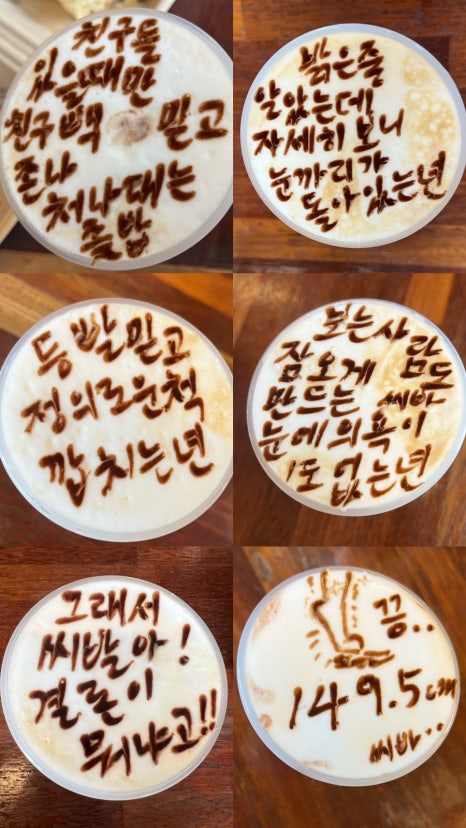 친구들
있을때만
친구빽 믿고
존나
처나대는
좆밥
밝은줄
알았는데
자세히 보니
눈까리가
돌아있는년
등빨믿고
정의로운척
깝치는년
보는사람도
잠오게
만드는 씨바
눈에의욕이
1도없는년
그래서
씨발아!
결론이
뭐냐고!!
끙..
149.5cm
씨바..